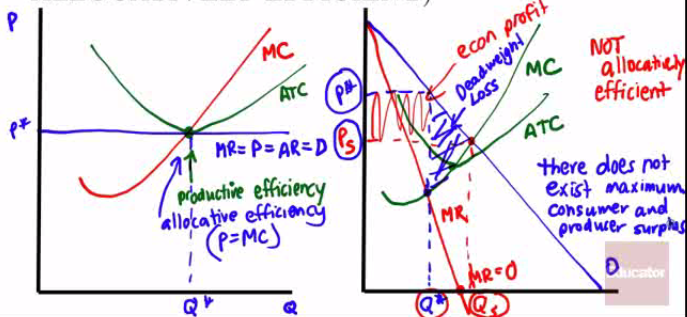 P
MC
ATC
P*
MR=P=AR=D
productive efficiency
allocative efficiency
(P=MC)
Q*
Q
P
econ profit
Deadweight
Loss
MC
ATC
P*
Ps
MR
MR=0
D
Q*
Qs
NOT
allocatively
efficient
there does not
exist maximum
consumer and
producer surplus
educator